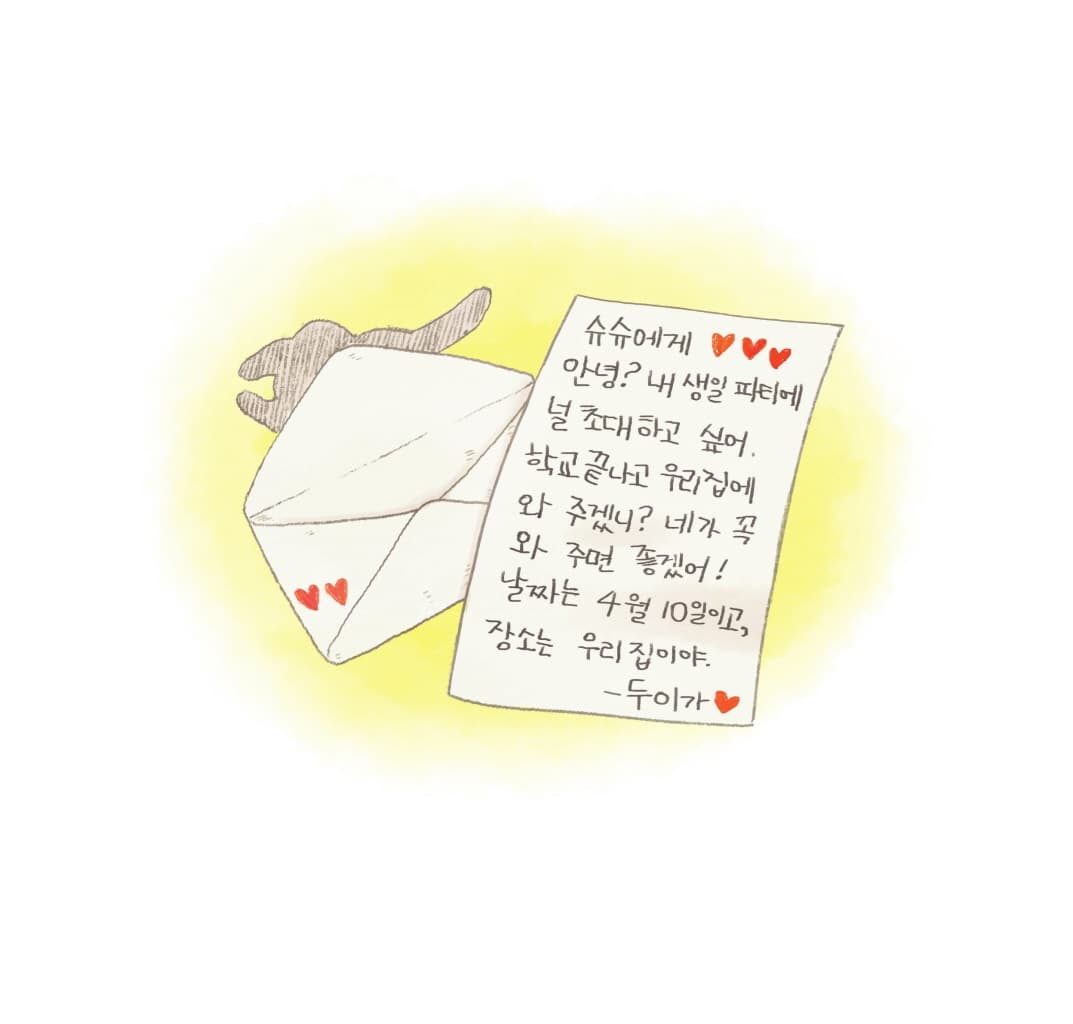 슈슈에게
안녕? 내 생일 파티에
널 초대하고 싶어.
학교끝나고 우리집에
와 주겠니? 네가 꼭
와 주면 좋겠어!
날짜는 4월 10일이고,
장소는 우리집이야.
-두이가